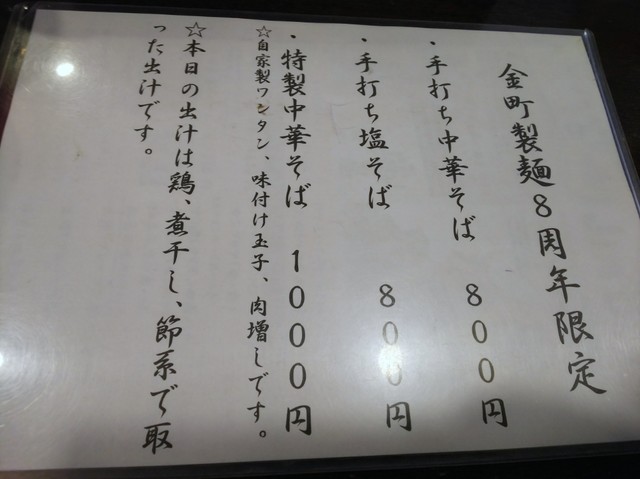 金町製麺8周年限定
・手打ち中華そば 800円
・手打ち塩そば 800円
・特製中華そば 1000円
☆自家製ワンタン、味付け玉子、肉増しです。
☆本日の出汁は鶏、煮干し、節系で取
った出汁です。